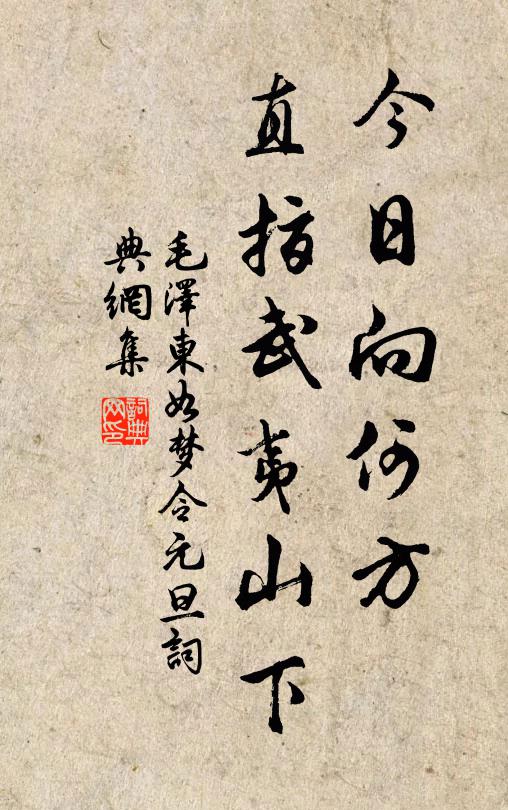 今日向何方
直指武夷山下
毛澤東如梦令元旦詞
典網集
詞典网印